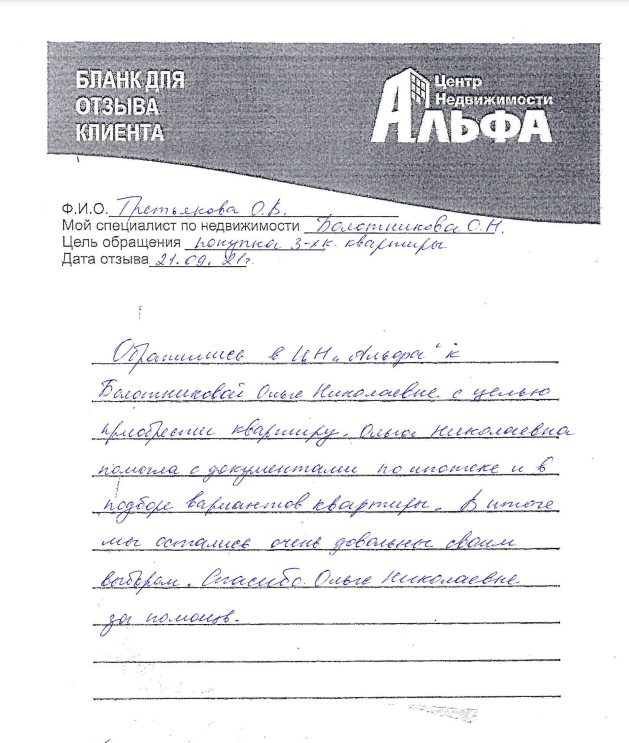 БЛАНК ДЛЯ
ОТЗЫВА
КЛИЕНТА
Центр
Недвижимости
АЛЬФА
Ф.И.О. Третьякова О.В.
Мой специалист по недвижимости Болотникова О.Н.
Цель обращения покупка 3-хк. квартиры
Дата отзыва 21.09.21г.
Обратились в ЦН "Альфа" к
Болотниковой Ольге Николаевне с целью
приобрести квартиру. Ольга Николаевна
помогла с документами по ипотеке и в
подборе вариантов квартиры. В итоге
мы остались очень довольны своим
выбором. Спасибо Ольге Николаевне
за помощь.